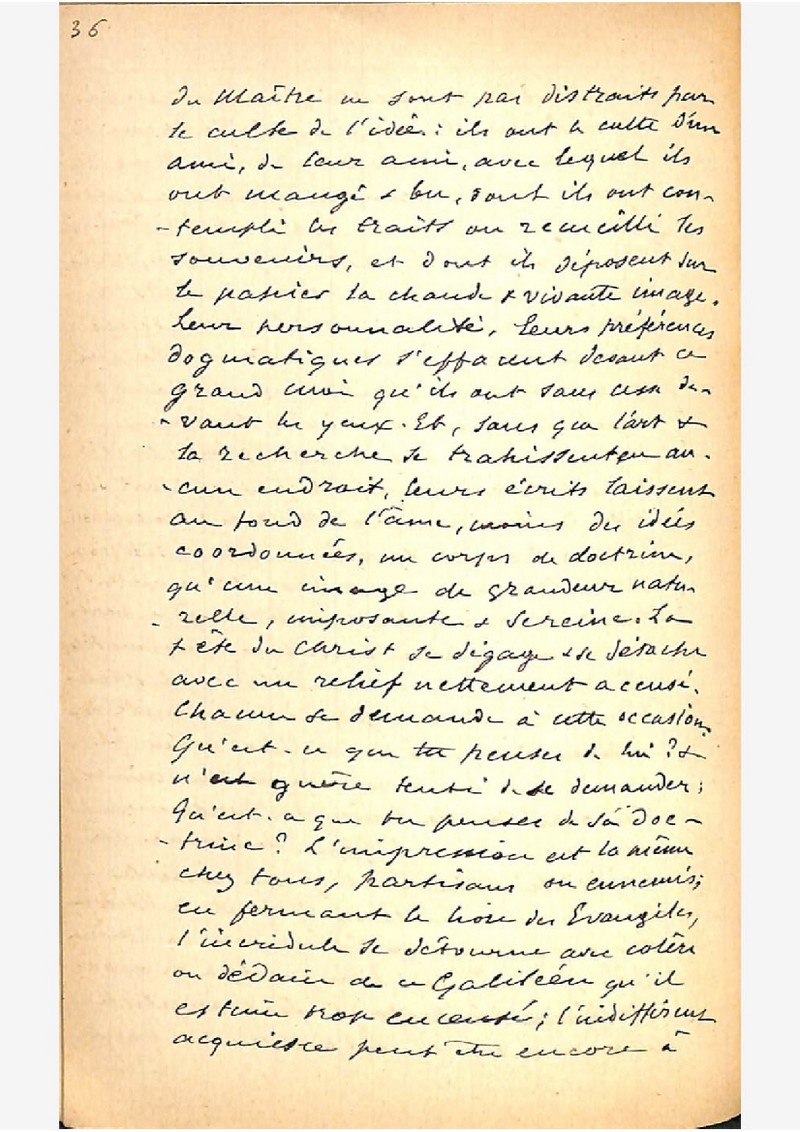 36
du Maître ne sont pas distraits par
le culte de l'idée : ils ont le culte d'un
ami, de leur ami, avec lequel ils
ont mangé & bu, dont ils ont con-
-templé les traits ou recueilli les
souvenirs, et dont ils déposent sur
le papier la chaude & vivante image.
Leur personnalité, leurs préférences
dogmatiques s'effacent devant ce
grand moi qu'ils ont sans cesse de-
-vant les yeux. Et, sans que l'art &
la recherche se trahissent en au-
-cun endroit, leurs écrits laissent
au fond de l'âme, moins des idées
coordonnées, un corps de doctrine,
qu'une image de grandeur natu-
-relle, imposante & sereine. La
tête du Christ se dégage & se détache
avec un relief nettement accusé.
Chacun se demande à cette occasion,
Qu'est-ce que tu penses de lui ? &
n'est guère tenté de se demander :
Qu'est-ce que tu penses de sa doc-
-trine ? L'impression est la même
chez tous, partisans ou ennemis ;
en fermant le livre des Evangiles,
l'incrédule se détourne avec colère
ou dédain de ce Galiléen qu'il
estime trop encensé ; l'indifférent
acquiesce peut être encore à